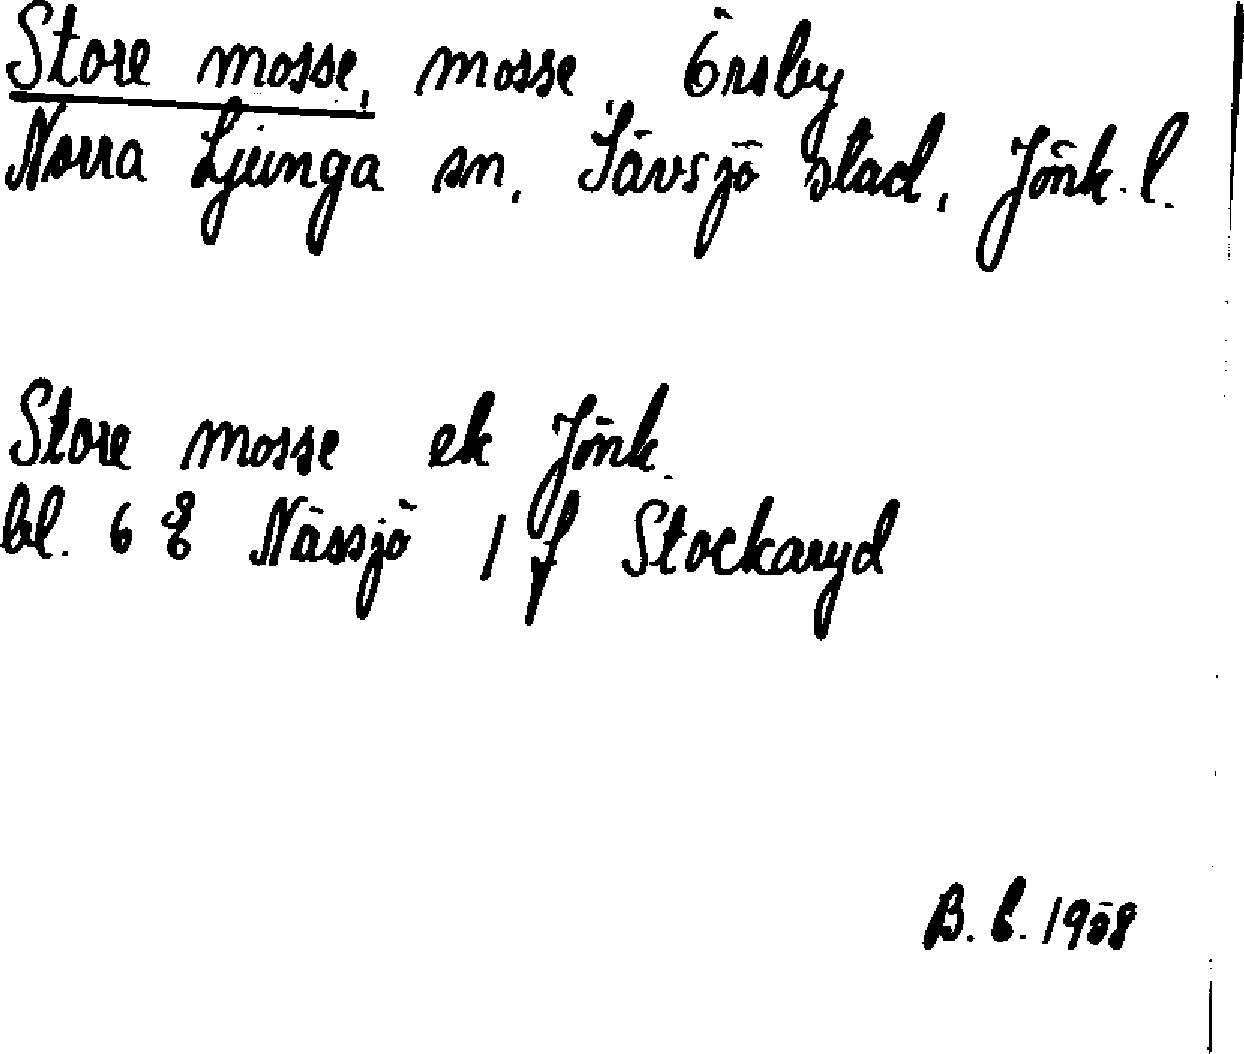 Store mosse, mosse, Örsby
Norra Ljunga sn, Sävsjö stad, Jönk. l.
Store mosse ek Jönk.
bl. 6 Nässjö 1 f Stockaryd
B. b. 1958